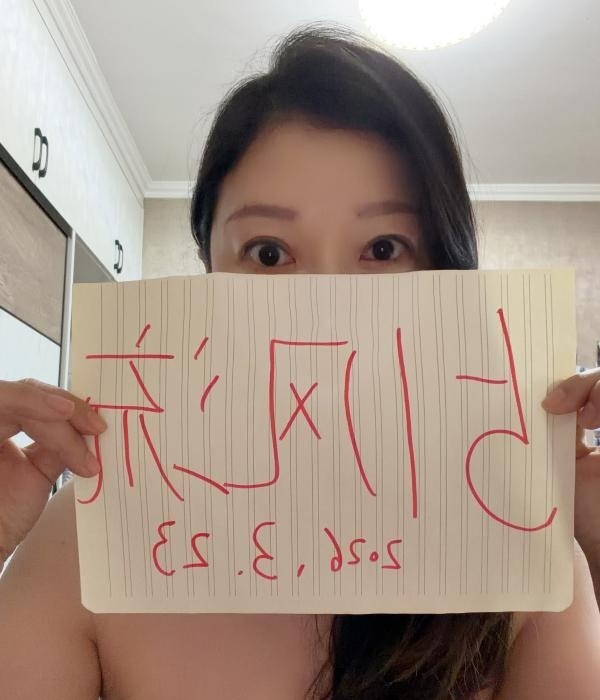 风流
2026.3.23